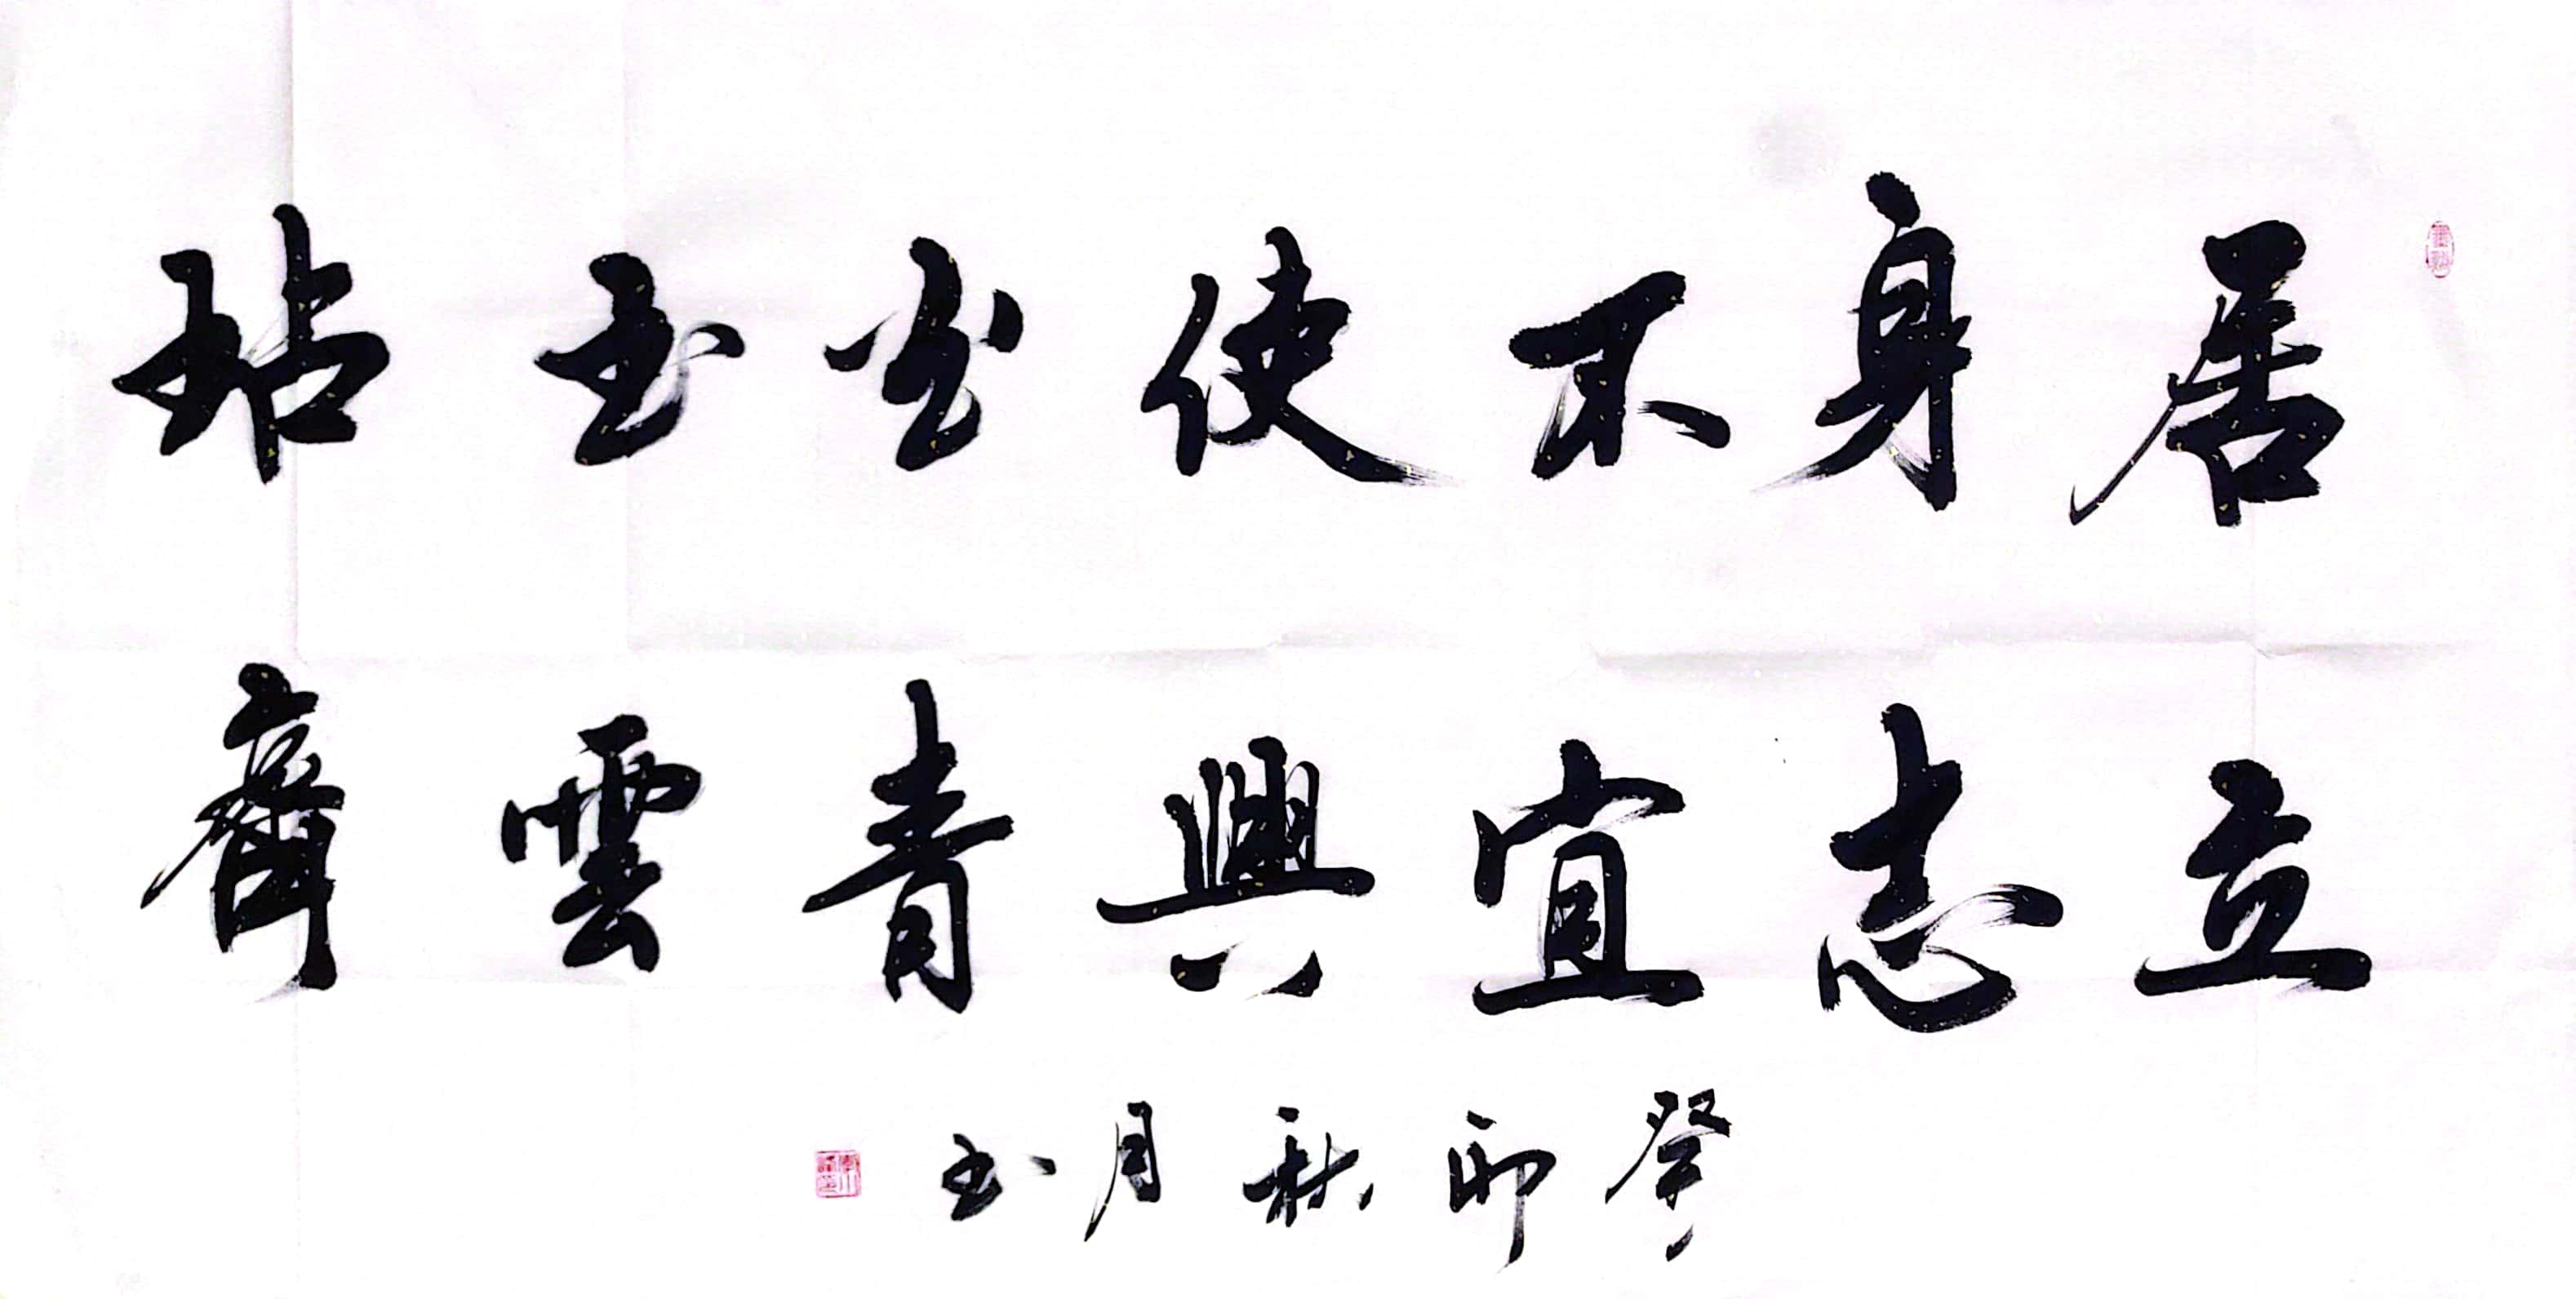 居身不使玉玷
立志宜與青雲齊
癸卯秋月书